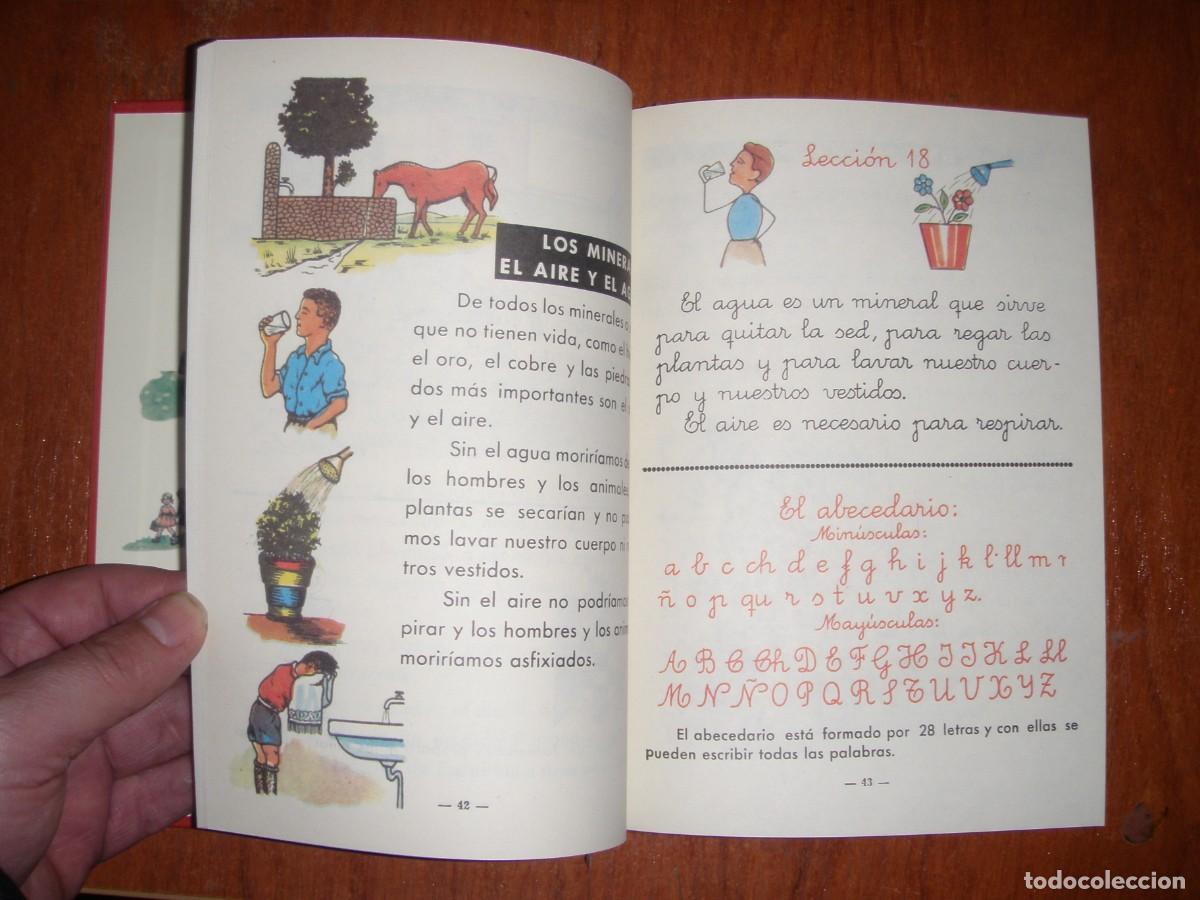 LOS MINERA
EL AIRE Y EL AG
De todos los minerales o
que no tienen vida, como el
el oro, el cobre y las piedra
dos más importantes son el
y el aire.
Sin el agua moriríamos
los hombres y los animales
plantas se secarían y no
mos lavar nuestro cuerpo ni
tros vestidos.
Sin el aire no podríamos
pirar y los hombres y los anim
moriríamos asfixiados.
— 42 —
Lección 18
El agua es un mineral que sirve
para quitar la sed, para regar las
plantas y para lavar nuestro cuer-
po y nuestros vestidos.
El aire es necesario para respirar.
El abecedario:
Minúsculas:
a b c ch d e f g h i j k l·ll m n
ñ o p qu r s t u v x y z.
Mayúsculas:
A B C Ch D E F G H I J K L Ll
M N Ñ O P Q R S T U V X Y Z
El abecedario está formado por 28 letras y con ellas se
pueden escribir todas las palabras.
— 43 —
todocoleccion